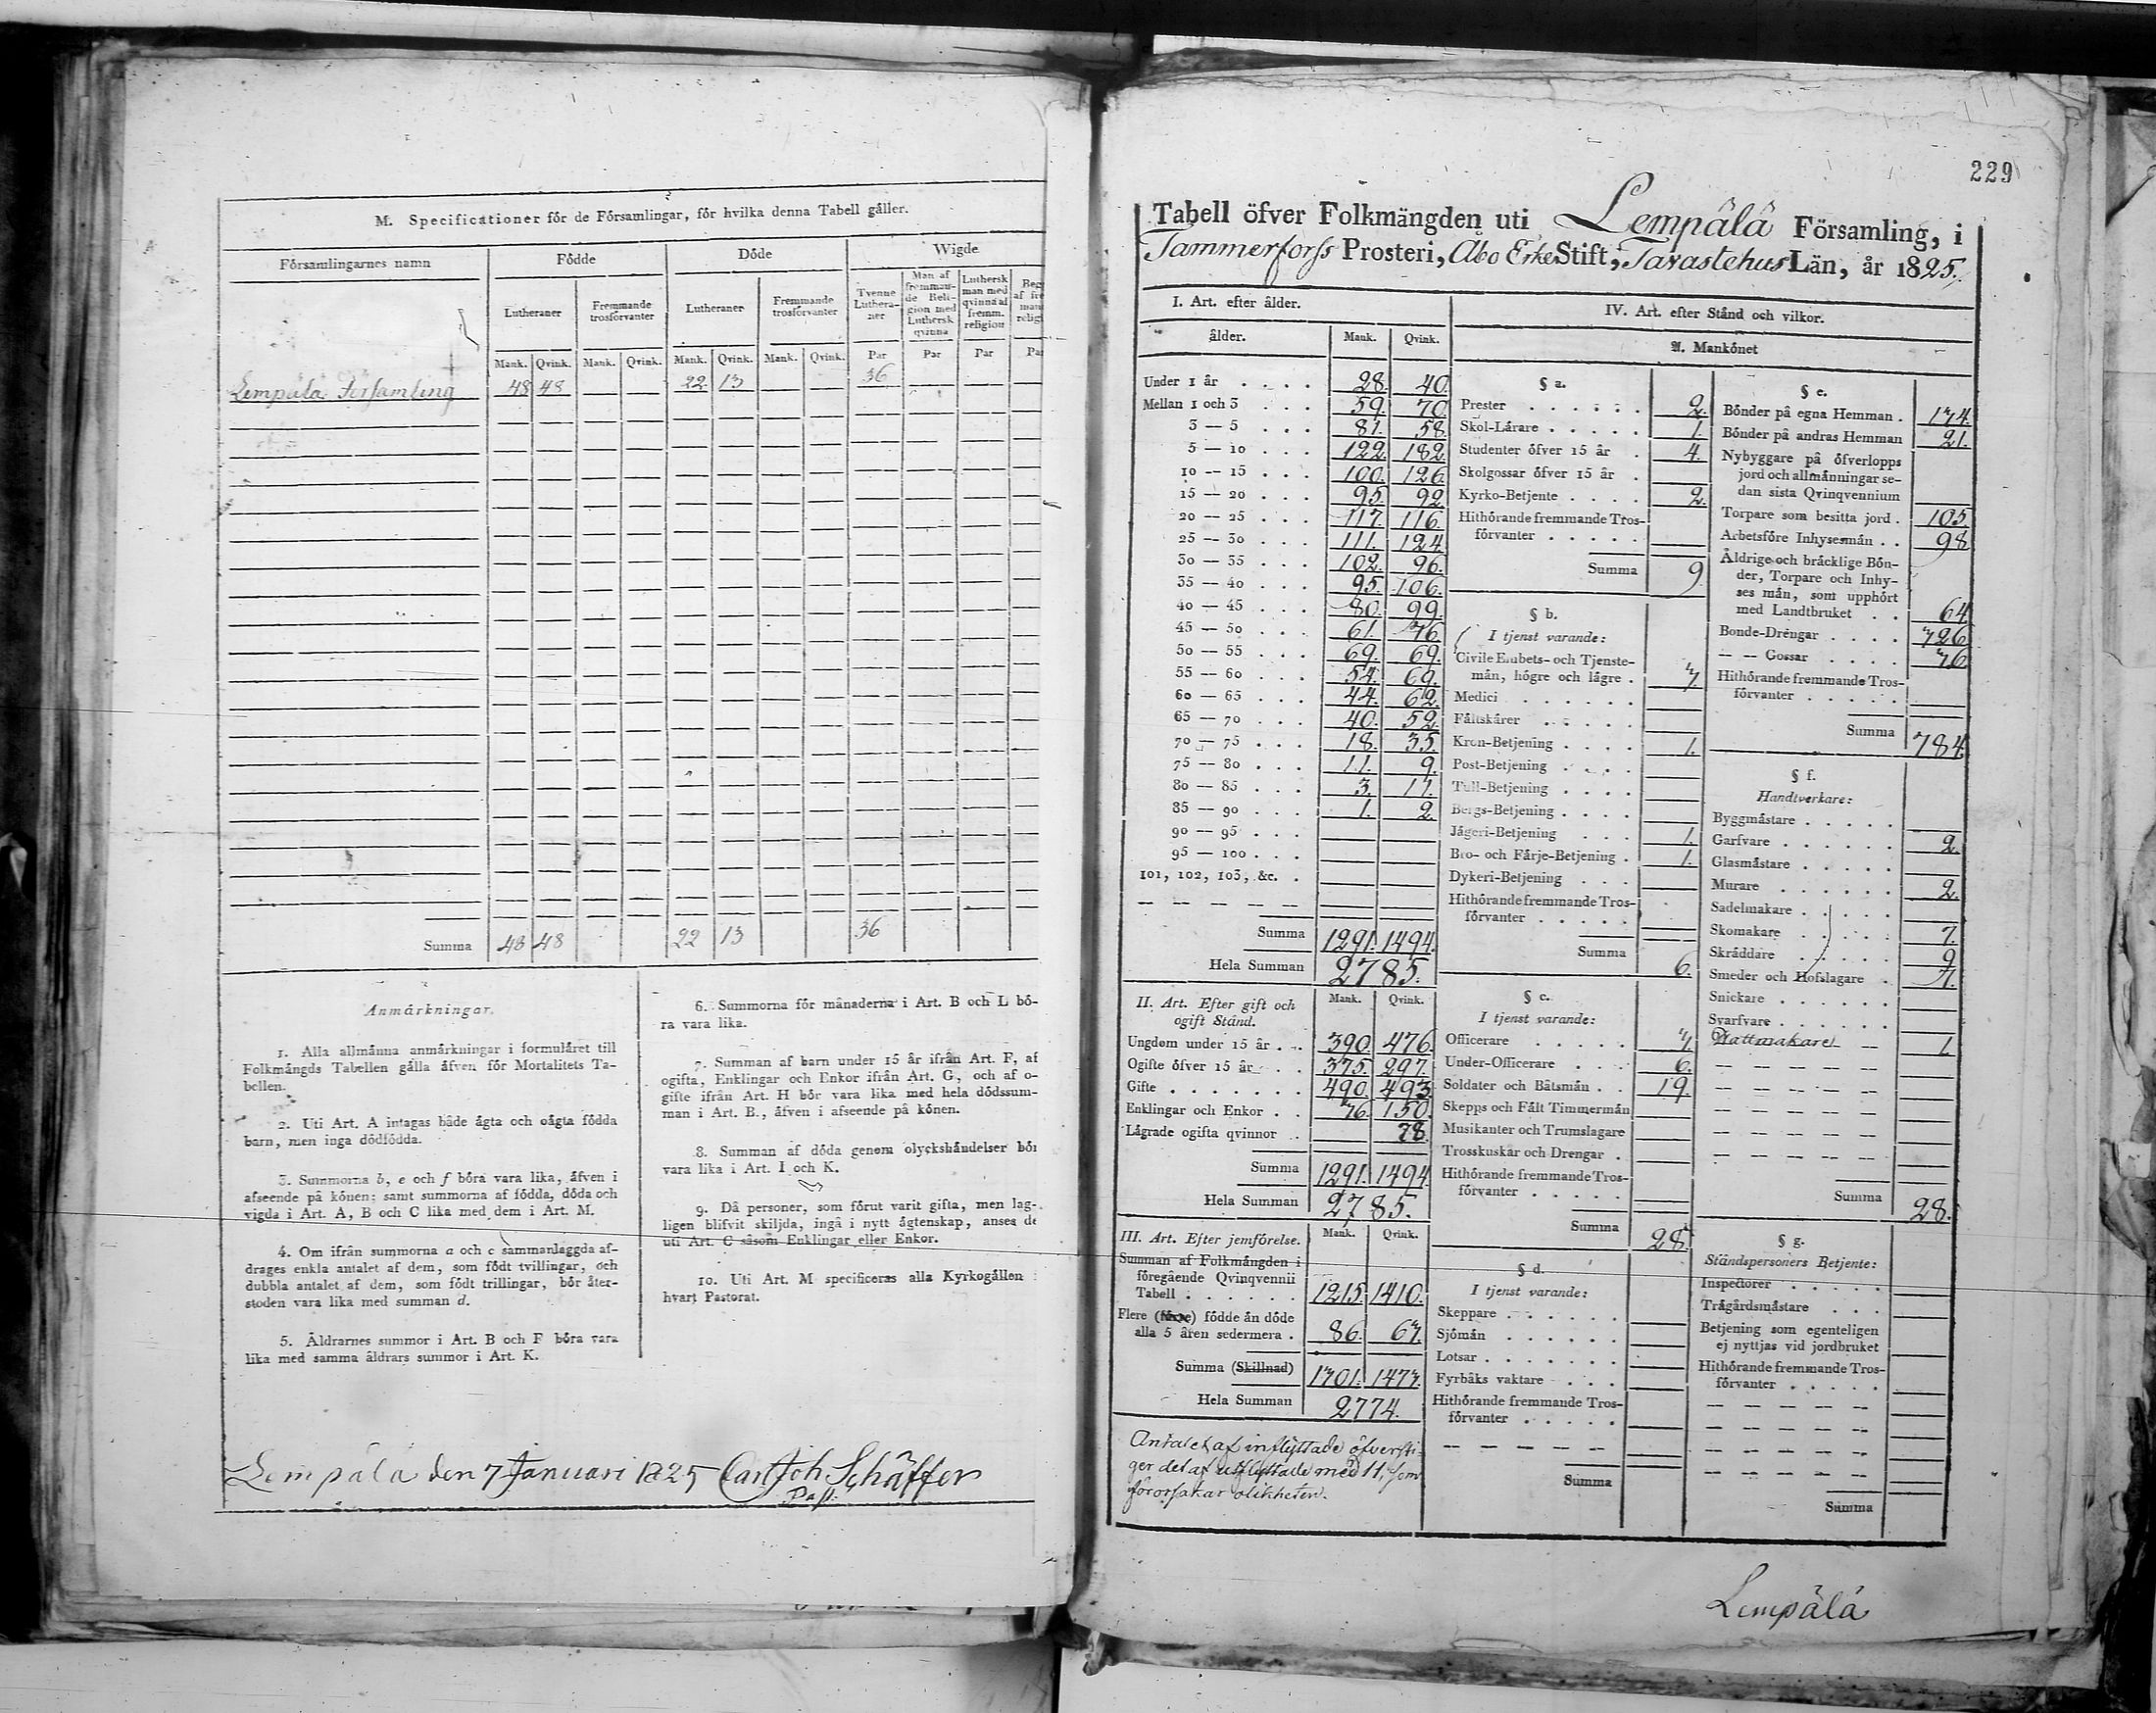 M. Specificationer för de Församlingar, för hvilka denna Tabell gäller.
Församlingarnes namn Födde Döde Wigde
Lutheraner Fremmande trosförvanter Lutheraner Fremmande trosförvanter Tvenne Lutheraner Man af fremmande Religion med Luthersk qvinna Luthersk man med qvinna af fremm. religion
Mank. Qvink. Mank. Qvink. Mank. Qvink. Mank. Qvink. Par Par Par Par
Lempälä Församling 48 48 22 13 36
Summa 48 48 22 13 36
Anmärkningar.
1. Alla allmänna anmärkningar i formuläret till
Folkmängds Tabellen gälla äfven för Mortalitets Ta-
bellen.
2. Uti Art. A intagas både ägta och oägta födda
barn, men inga dödfödda.
3. Summorna b, e och f böra vara lika, äfven i
afseende på könen; samt summorna af födda, döda och
vigda i Art. A, B och C lika med dem i Art. M.
4. Om ifrån summorna a och c sammanlaggda af-
drages enkla antalet af dem, som födt tvillingar, och
dubbla antalet af dem, som födt trillingar, bör åter-
stoden vara lika med summan d.
5. Åldrarnes summor i Art. B och F böra vara
lika med samma åldrars summor i Art. K.
6. Summorna för månaderna i Art. B och L bö-
ra vara lika.
7. Summan af barn under 15 år ifrån Art. F, af
ogifta, Enklingar och Enkor ifrån Art. G, och af o-
gifte ifrån Art. H bör vara lika med hela dödssum-
man i Art. B., äfven i afseende på könen.
8. Summan af döda genom olyckshändelser bör
vara lika i Art. I och K.
9. Då personer, som förut varit gifta, men lag-
ligen blifvit skiljda, ingå i nytt ägtenskap, anses de
uti Art. C såsom Enklingar eller Enkor.
10. Uti Art. M specificeras alla Kyrkogällen i
hvart Pastorat.
Lempälä den 7 Januari 1825 Carl Joh Schäffer
Past.
229
Tabell öfver Folkmängden uti Lempälä Församling, i
Tammerforss Prosteri, Åbo Erke Stift, Tavastehus Län, år 1825.
I. Art. efter ålder.
ålder. Mank. Qvink.
Under 1 år 28. 40.
Mellan 1 och 3 59. 70.
3 — 5 81. 58.
5 — 10 122. 182.
10 — 15 100. 126.
15 — 20 95. 92.
20 — 25 117. 116.
25 — 30 111. 124.
30 — 35 102. 96.
35 — 40 95. 106.
40 — 45 80. 99.
45 — 50 61. 76.
50 — 55 69. 69.
55 — 60 54. 69.
60 — 65 44. 62.
65 — 70 40. 52.
70 — 75 18. 35.
75 — 80 11. 9.
80 — 85 3. 11.
85 — 90 1. 2.
90 — 95
95 — 100
101, 102, 103, &c.
Summa 1291. 1494.
Hela Summan 2785.
II. Art. Efter gift och ogift Stånd. Mank. Qvink.
Ungdom under 15 år 390. 476.
Ogifte öfver 15 år 375. 297.
Gifte 490. 493.
Enklingar och Enkor 76. 150.
Lägrade ogifta qvinnor 78.
Summa 1291. 1494.
Hela Summan 2785.
III. Art. Efter jemförelse. Mank. Qvink.
Summan af Folkmängden i
föregående Qvinqvennii
Tabell 1215. 1410.
Flere (färre) födde än döde
alla 5 åren sedermera 86. 67.
Summa (Skillnad) 1301. 1477.
Hela Summan 2774.
Antalet af inflyttade öfversti-
ger det af utflyttade med 11, som
förorsakar olikheten.
IV. Art. efter Stånd och vilkor.
A. Mankönet
§ a.
Prester 2.
Skol-Lärare 1.
Studenter öfver 15 år 4.
Skolgossar öfver 15 år
Kyrko-Betjente 2.
Hithörande fremmande Tros-
förvanter
Summa 9
§ b.
I tjenst varande:
Civile Embets- och Tjenste-
män, högre och lägre
Medici
Fältskärer
Kron-Betjening 1.
Post-Betjening
Tull-Betjening
Bergs-Betjening
Jägeri-Betjening 1.
Bro- och Färje-Betjening 1.
Dykeri-Betjening
Hithörande fremmande Tros-
förvanter
Summa 6.
§ c.
I tjenst varande:
Officerare
Under-Officerare 6.
Soldater och Båtsmän 19.
Skepps och Fält Timmermän
Musikanter och Trumslagare
Trosskuskar och Drengar
Hithörande fremmande Tros-
förvanter
Summa 28.
§ d.
I tjenst varande:
Skeppare
Sjömän
Lotsar
Fyrbåks vaktare
Hithörande fremmande Tros-
förvanter
Summa
§ e.
Bönder på egna Hemman 174.
Bönder på andras Hemman 21.
Nybyggare på öfverlopps
jord och allmänningar se-
dan sista Qvinqvennium
Torpare som besitta jord 105.
Arbetsföre Inhysesmän 98
Åldrige och bräcklige Bön-
der, Torpare och Inhy-
ses män, som upphört
med Landtbruket 64
Bonde-Drengar
— — Gossar 76
Hithörande fremmande Tros-
förvanter
Summa 784.
§ f.
Handtverkare:
Byggmästare
Garfvare 2.
Glasmästare
Murare 2.
Sadelmakare
Skomakare 7.
Skräddare 9
Smeder och Hofslagare 7.
Snickare
Svarfvare
Hattmakare 1.
Summa 28.
§ g.
Ståndspersoners Betjente:
Inspectorer
Trägårdsmästare
Betjening som egenteligen
ej nyttjas vid jordbruket
Hithörande fremmande Tros-
förvanter
Summa
Lempälä